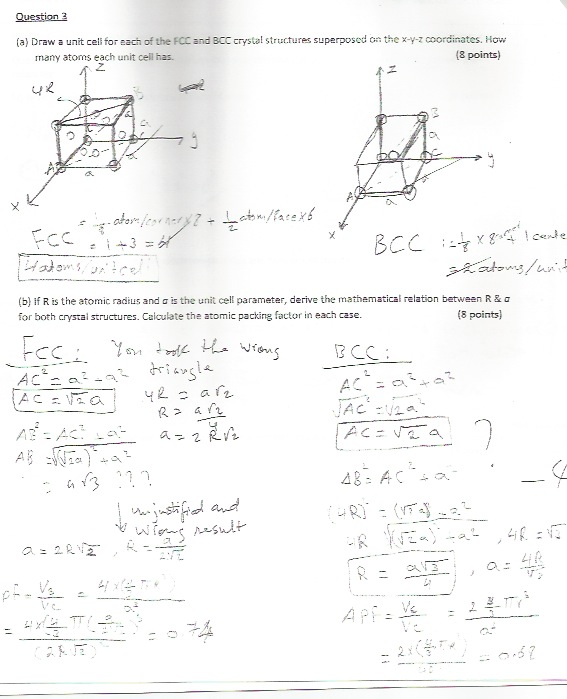 Question 3
(a) Draw a unit cell for each of the FCC and BCC crystal structures superposed on the x-y-z coordinates. How
many atoms each unit cell has. (8 points)
z
4R
B
a
y
A
a
x
z
B
a
C
y
A
a
x
FCC = 1/8 atom/corner x 8 + 1/2 atom/face x 6
= 1 + 3 = 4
4 atoms/unit cell
BCC := 1/8 x 8 + 1 cente
= 2 atoms/unit
(b) If R is the atomic radius and a is the unit cell parameter, derive the mathematical relation between R & a
for both crystal structures. Calculate the atomic packing factor in each case. (8 points)
FCC: You took the wrong
triangle
AC² = a² + a²
AC = √2 a
4R = a√2
R = a√2/4
a = 2R√2
AB² = AC² + a²
AB = √(√2a)² + a²
= a√3 ???
unjustified and
wrong result
a = 2R√2, R = a/2√2
pf = Vs/Vc = 4x(4/3 π r³)/a³
= 0.74
BCC:
AC² = a² + a²
√AC² = √2a²
AC = √2 a
?
AB² = AC² + a²
- 4
(4R)² = (√2a)² + a²
4R = √(√2a)² + a², 4R = √3
R = a√3/4, a = 4R/√3
APF = Vs/Vc = 2 4/3 π r³/a³
= 0.68